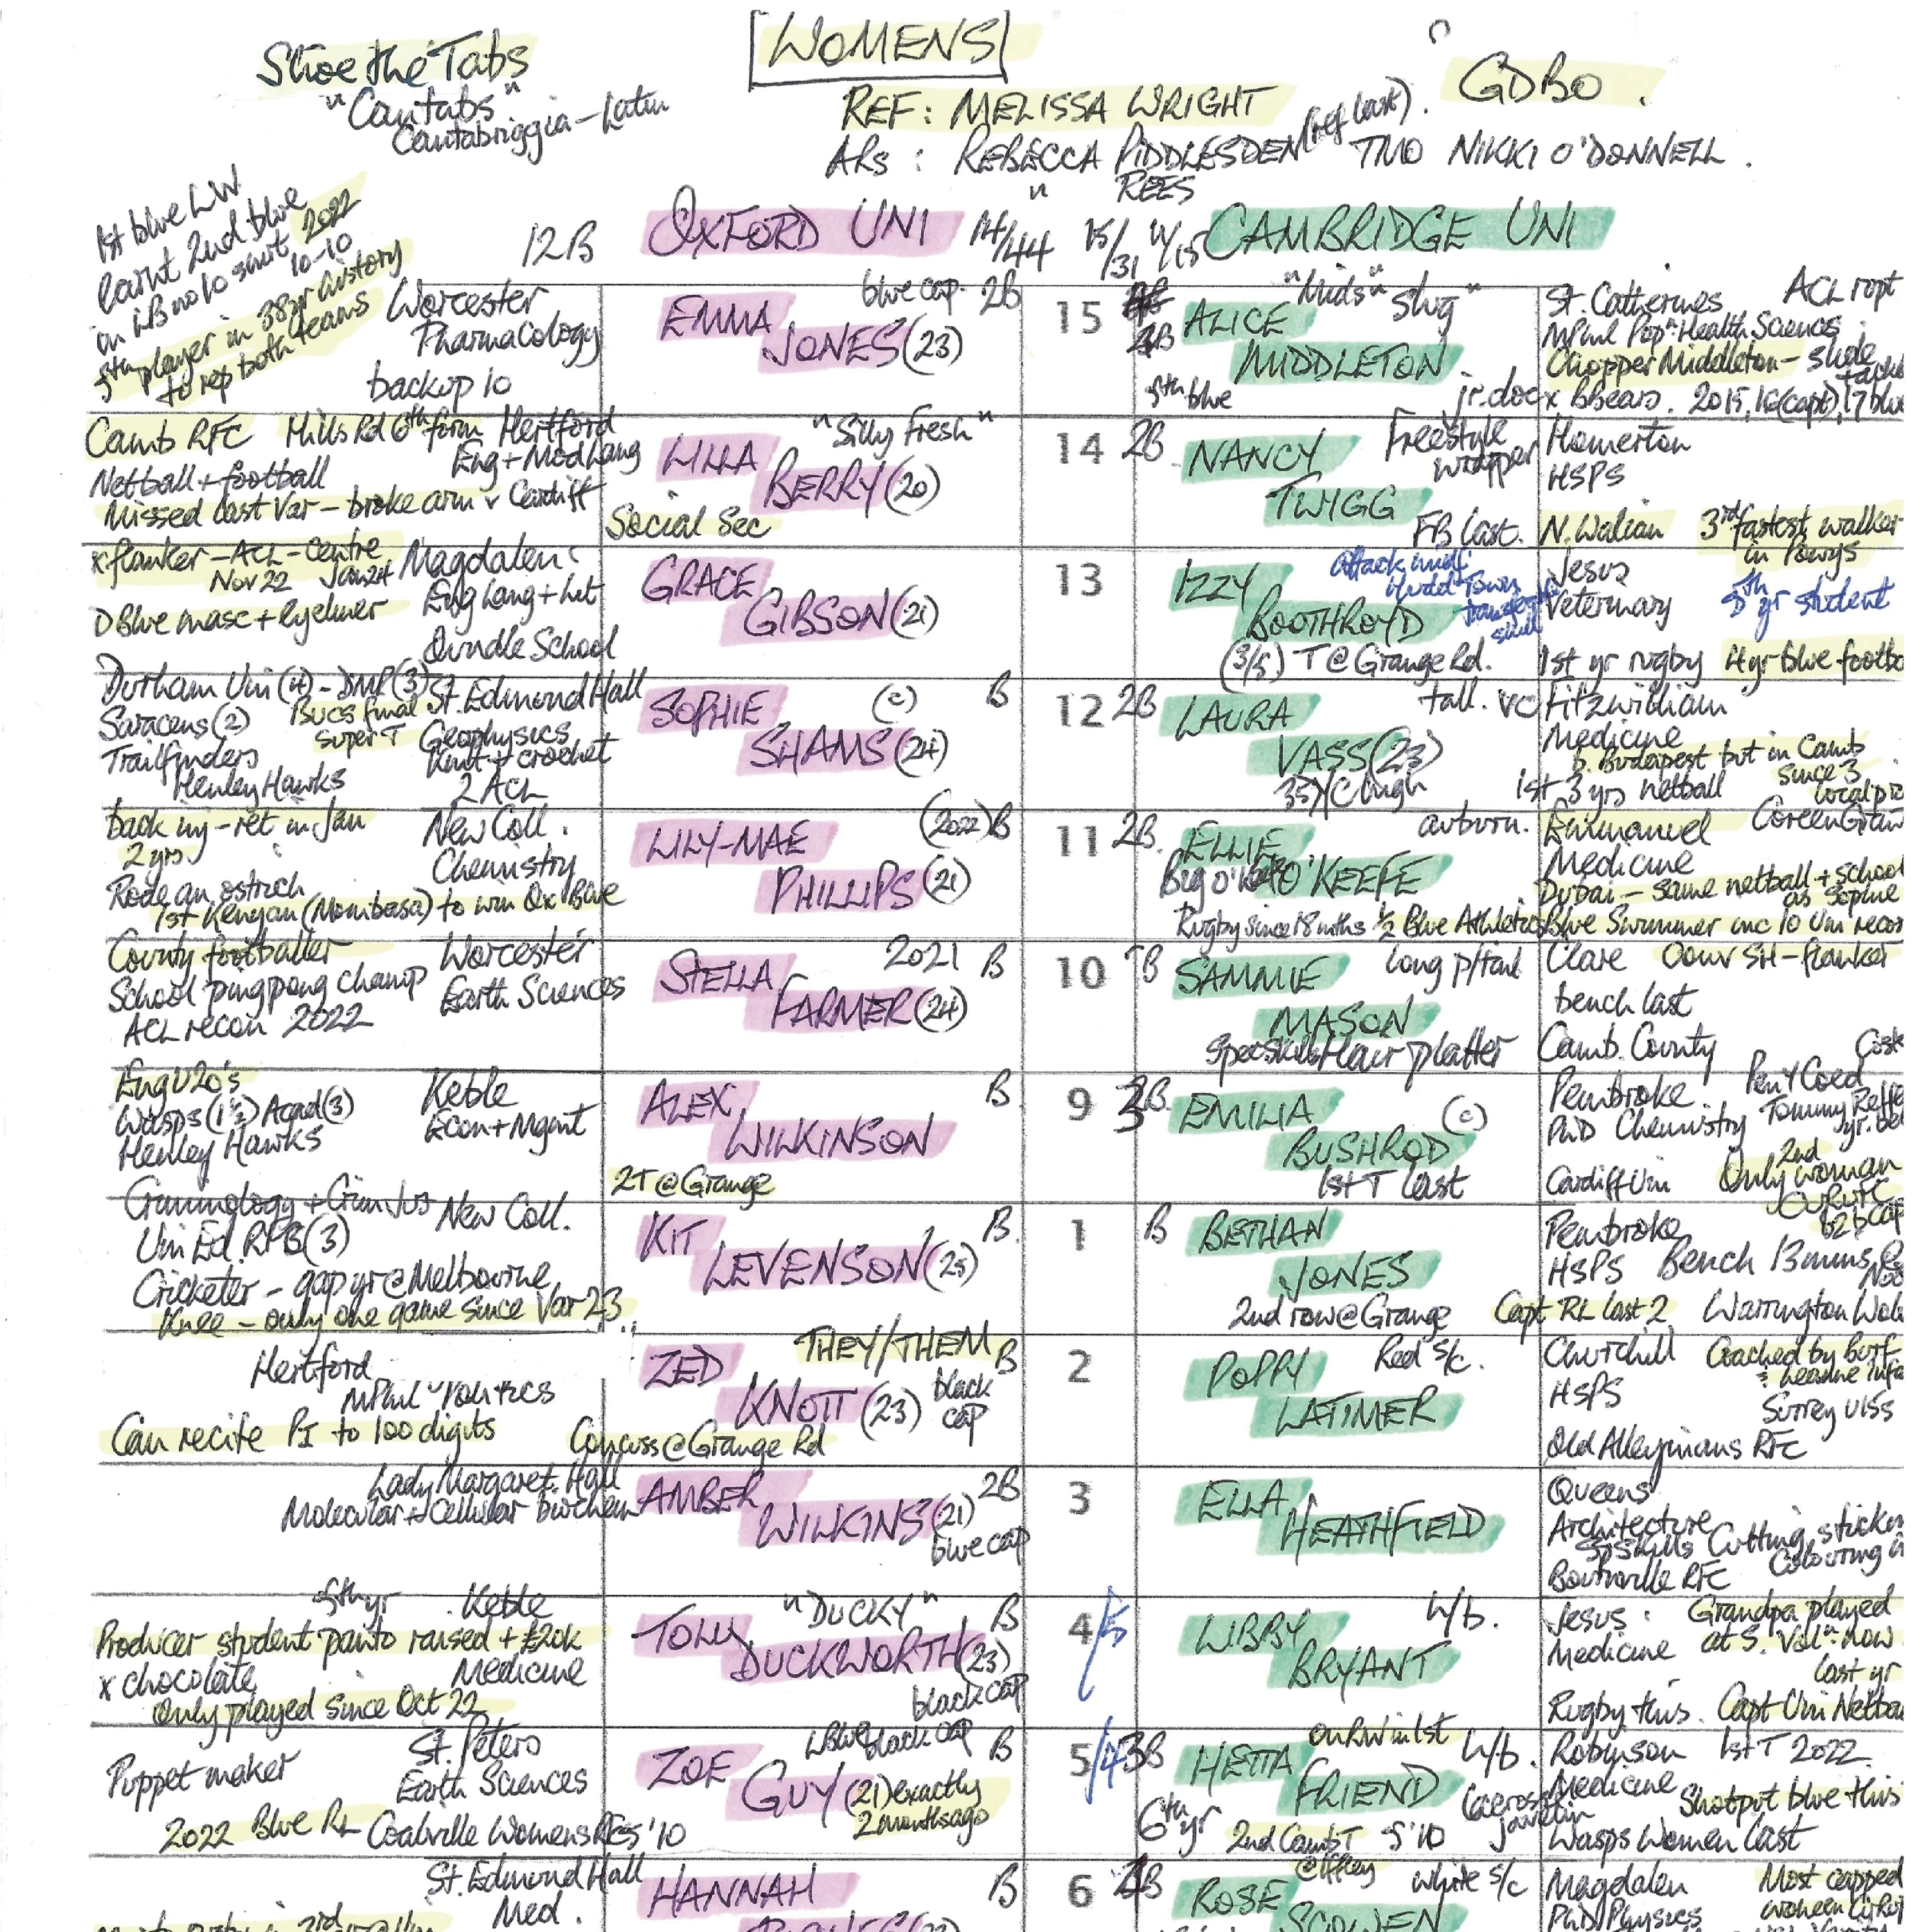 Shoe the Tabs
"Cantabs"
Cantabriggia – Latin
WOMENS
GDBO.
REF: MELISSA WRIGHT
(ref last).
ARs: REBECCA PIDDLESDEN TMO NIKKI O'DONNELL.
" REES
1st blue LW
learnt 2nd blue
in LB no 10 shirt 2022
10-10
5th player in 38yr history
to rep both teams
12B OXFORD UNI 14/44 15/31 4/15 CAMBRIDGE UNI
Worcester
Pharmacology
backup 10
blue cap. 2B
EMMA
JONES (23)
15
ALICE
MIDDLETON
"Mids" slug"
5th blue
jr. doc
St. Catherines ACL rept
MPhil Popn Health Sciences
Chopper Middleton – slide
x BBears. 2015, 16(capt), 17 blue
Camb RFC Hills Rd 6th form Hertford
Netball + football Eng + Mod Lang
Missed last Var – broke arm v Cardiff
"Silly Fresh"
LILLA
BERRY (20)
Social Sec
14 2B
NANCY
TWIGG
Freestyle
wrapper
FB last.
Homerton
HSPS
N. Walian 3rd fastest walker
in Powys
x flanker – ACL – Centre Magdalen
Nov 22 Jan 24 Eng Lang + Lit
D Blue masc + eyeliner
Oundle School
GRACE
GIBSON (21)
13
IZZY
BOOTHROYD
attack midf
Hudd Town
transferable
skill
(3/5) T @ Grange Rd.
Jesus
Veterinary 5th yr student
1st yr rugby 4yr blue footb
Durham Uni (4) – DMP (3) St. Edmond Hall
Saracens (2) BUCS final
Super T Geophysics
Trailfinders Knit + crochet
Henley Hawks 2 ACL
SOPHIE (c) B
SHAMS (24)
12 2B
LAURA tall. VC
VASS (23)
Fitzwilliam
Medicine
b. Budapest but in Camb
since 3
1st 3 yrs netball
back inj – ret in Jan New Coll.
2 yrs Chemistry
Rode an ostrich
1st Kenyan (Mombasa) to win Ox Blue
LILY-MAE (2022) B
PHILLIPS (21)
11 2B.
ELLIE auburn.
O'KEEFE
Rugby since 18 mths ½ Blue Athletics
Emmanuel
Medicine
Dubai – same netball + school
as Sophie
Blue Swimmer inc 10 Uni recor
County footballer Worcester
School ping pong champ Earth Sciences
ACL recon 2022
STELLA 2021 B
FARMER (24)
10 B
SAMMIE long p/tail
MASON
Spec Skills Hair platter
Clare Conv SH – flanker
bench last
Camb. County
Eng U20's Keble
Wasps (1½) Acad (3) Econ + Mgmt
Henley Hawks
ALEX B
WILKINSON
2T @ Grange
9 3B.
EMILIA (c)
BUSHROD
1st T last
Pembroke Pen Y Coed
PhD Chemistry Tommy Reffe
yr. be
Cardiff Uni 2nd
Only woman
OURWFC
b2b cap
Criminology + Crim Jus New Coll.
Uni Ed. RPB (3)
Cricketer – gap yr @ Melbourne
Knee – only one game since Var 23.
KIT B.
LEVENSON (25)
1 B
BETHAN
JONES
2nd row @ Grange
Pembroke
HSPS Bench 13 mins
Capt RL last 2 Warrington Wol
Hertford
MPhil Politics
Can recite PI to 100 digits
ZED THEY/THEM B
KNOTT (23) black
cap
Concuss @ Grange Rd
2
POPPY Red s/c.
LATIMER
Churchill Coached by Burf
HSPS
Surrey U15s
Old Alleynians RFC
Lady Margaret Hall
Molecular + Cellular biochem
AMBER 2B
WILKINS (21)
blue cap
3
ELLA
HEATHFIELD
Queens
Architecture
Sp Skills Cutting, sticki
Colouring i
Bournville RFC
5th yr Keble
Producer student panto raised + £20k
x chocolate Medicine
Only played since Oct 22
"DUCKY" B
TOLLY
DUCKWORTH (23)
black cap
4/5
LIBBY h/b.
BRYANT
Jesus: Grandpa played
Medicine at S. Vall. now
last yr
Rugby this. Capt Uni Netba
St. Peters
Puppet maker Earth Sciences
2022 Blue RL Coalville Womens RFC 5'10
black cap B
ZOE
GUY (21) exactly
2 months ago
5/4 3B
on RW in 1st
HETTA h/b.
FRIEND
lacrosse
javelin
6th yr 2nd Camb T 5'10
@ Iffley
Robinson 1st T 2022
Medicine Shotput blue this
Wasps Women last
St. Edmond Hall
Med.
HANNAH B
6 4B
ROSE white s/c
SCOWEN
Magdalen Most capped
PhD Physics